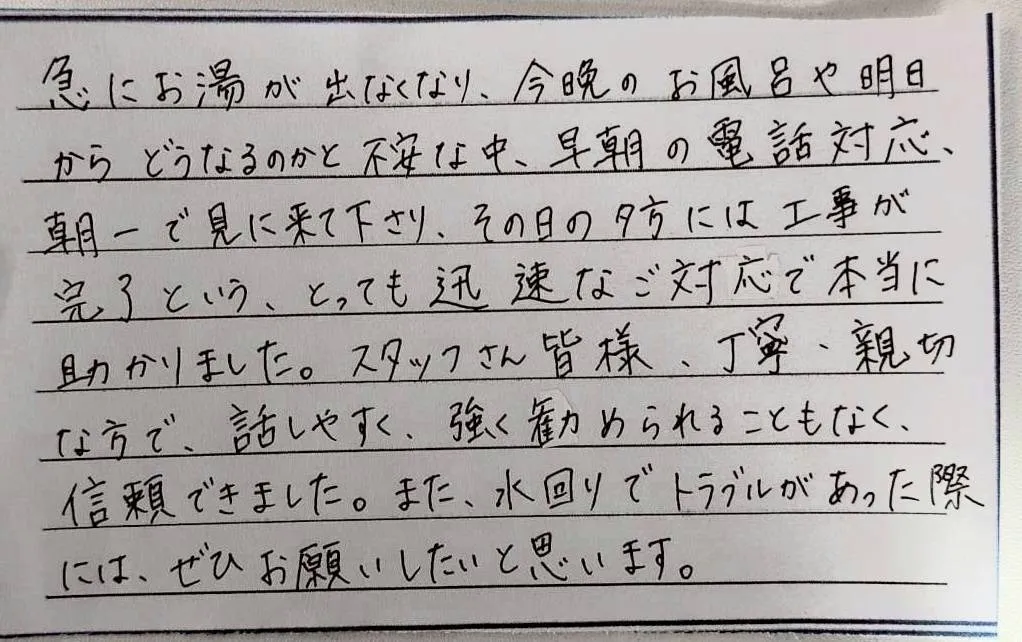 急にお湯が出なくなり、今晩のお風呂や明日
からどうなるのかと不安な中、早朝の電話対応、
朝一で見に来て下さり、その日の夕方には工事が
完了という、とっても迅速なご対応で本当に
助かりました。スタッフさん皆様、丁寧・親切
な方で、話しやすく、強く勧められることもなく、
信頼できました。また、水回りでトラブルがあった際
には、ぜひお願いしたいと思います。